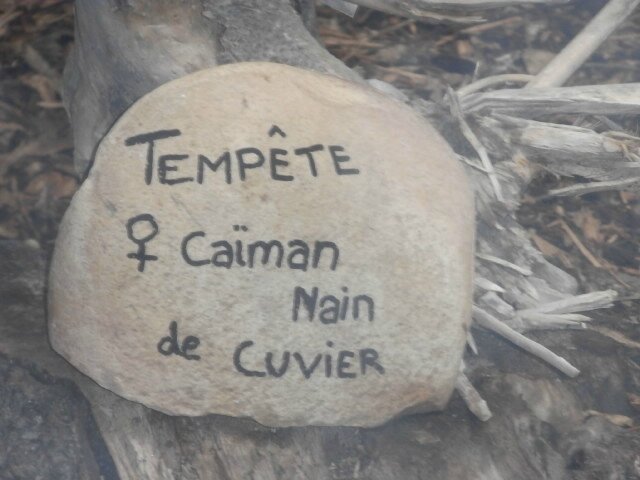 TEMPÊTE
♀ Caïman
Nain
de CUVIER